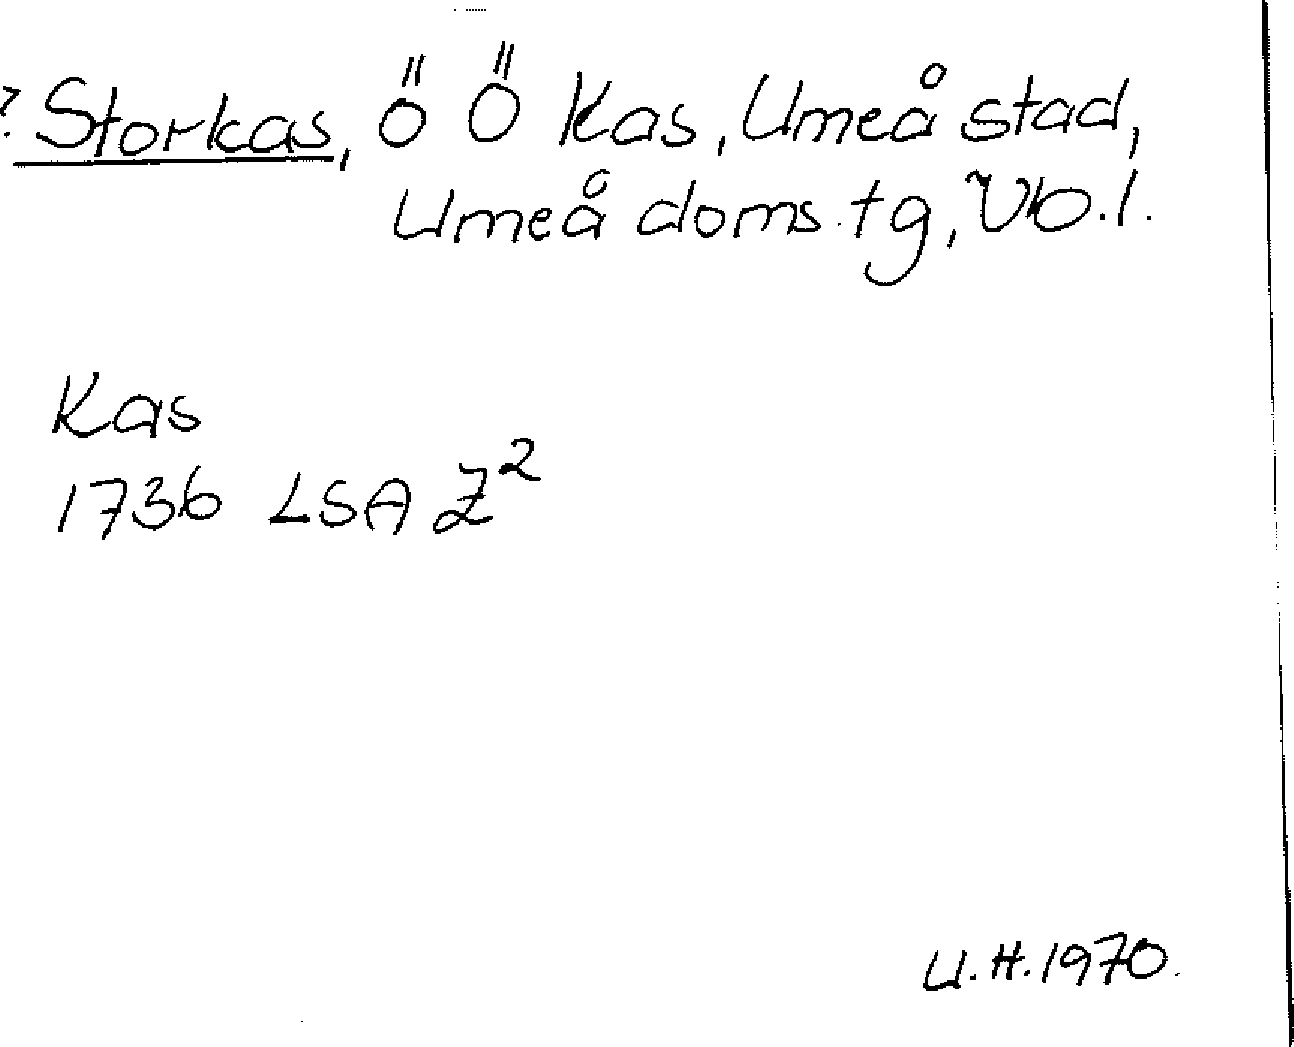 ? Storkas, ö Ö Kas, Umeå stad,
Umeå doms.tg, Vb.l.
Kas
1736 LSA Z²
U.H.1970.